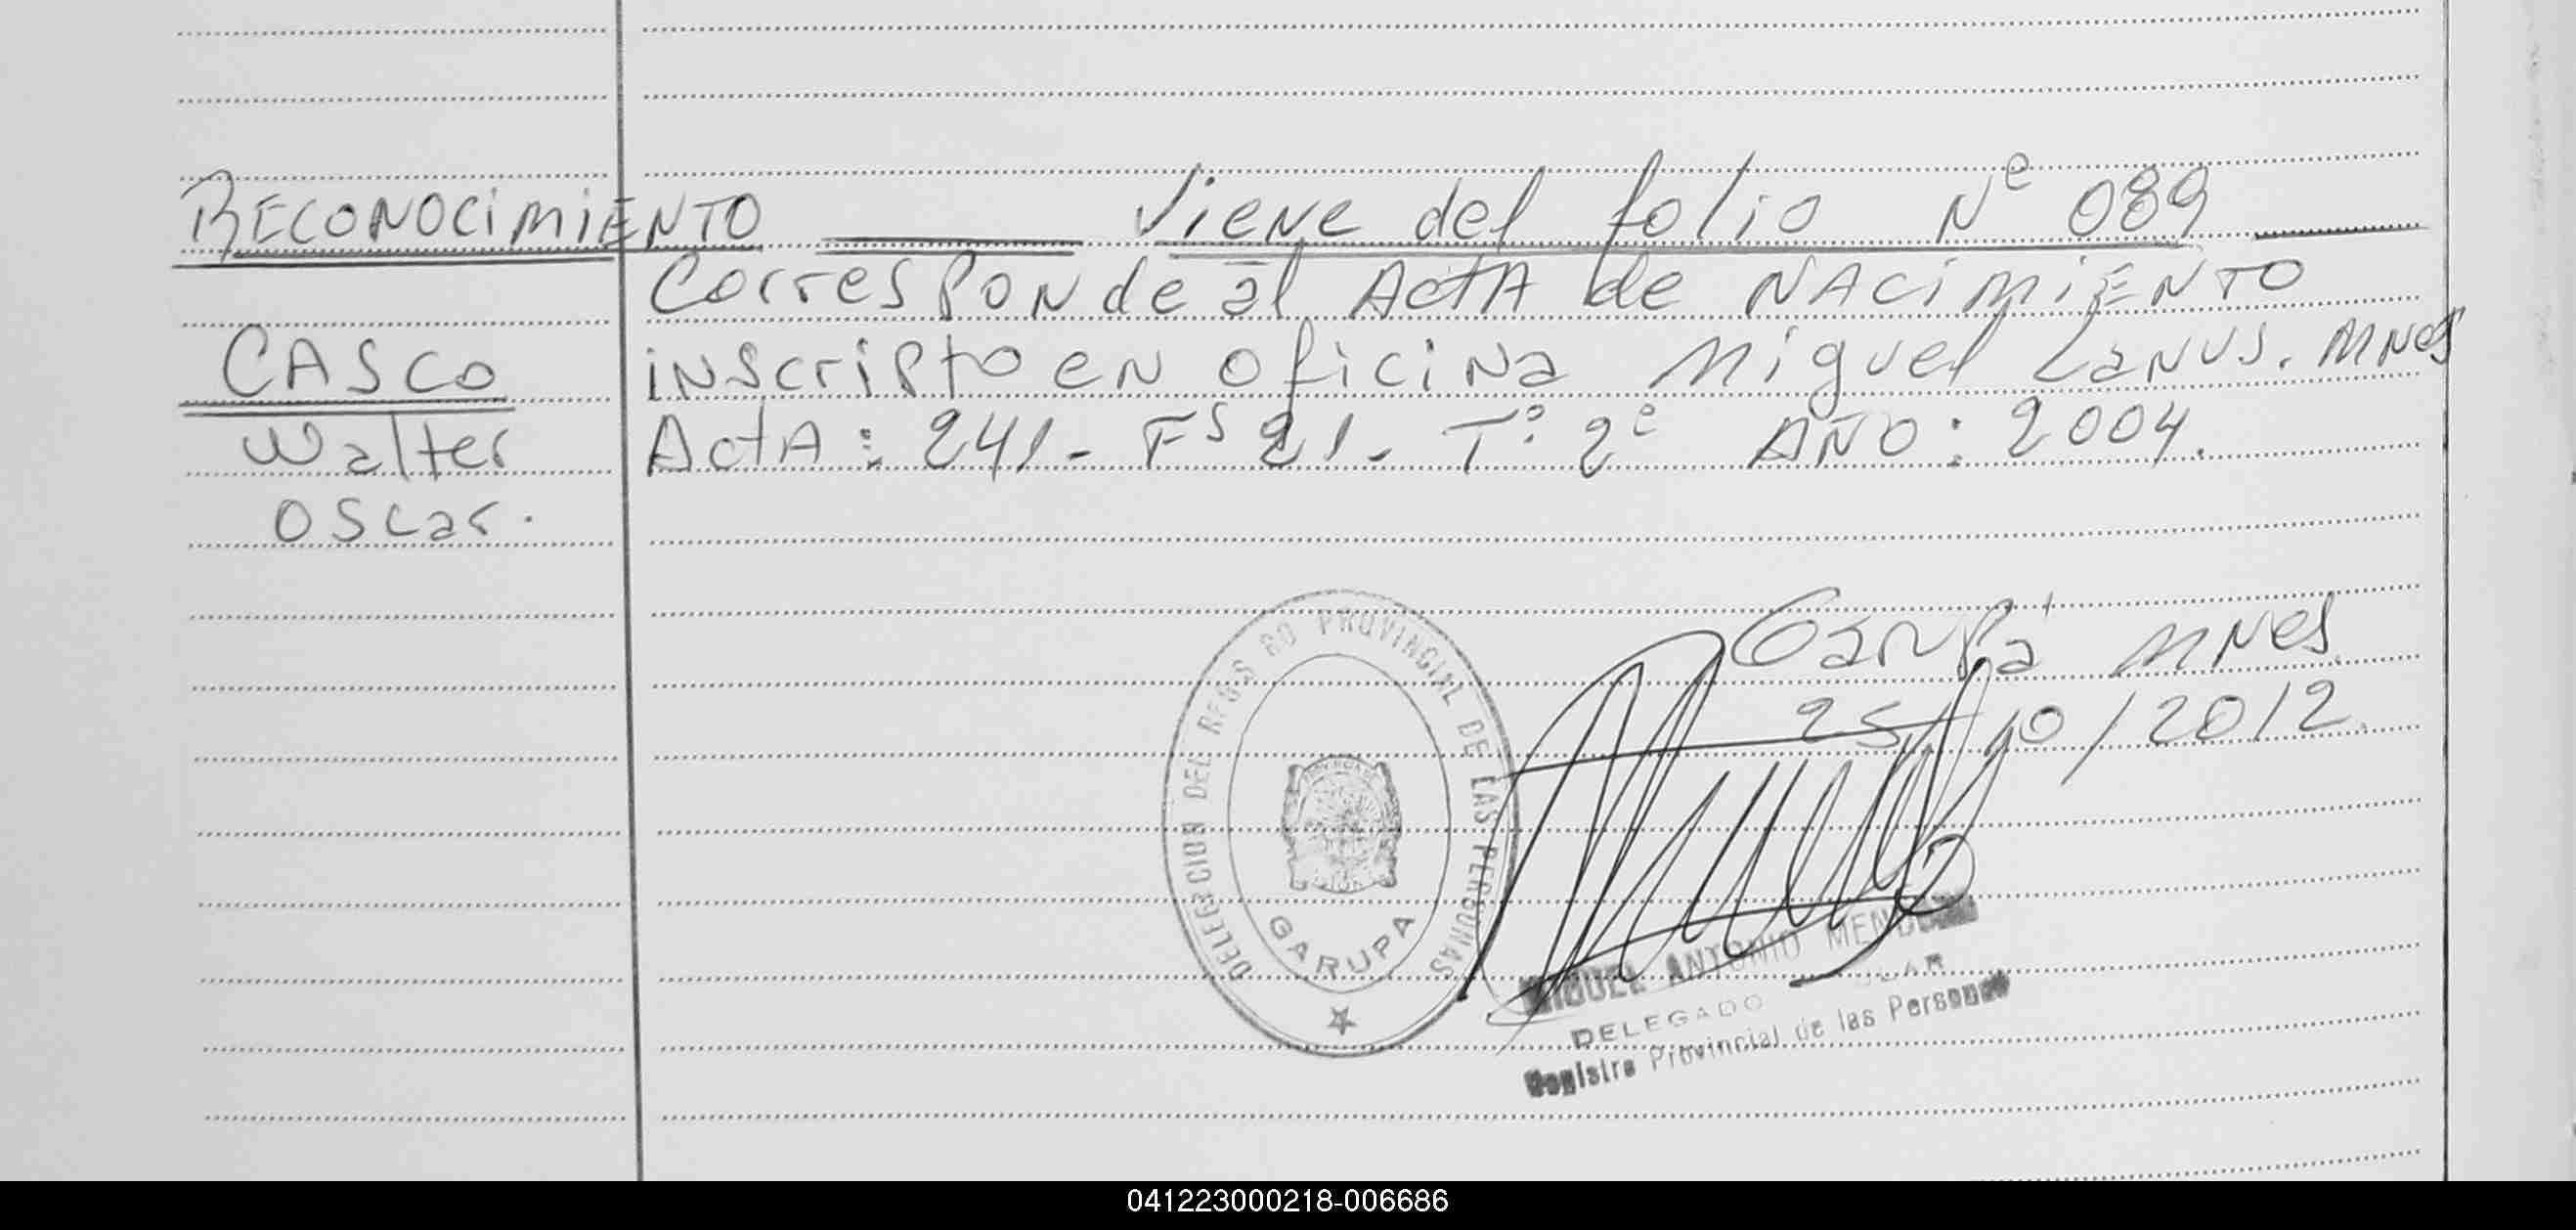 RECONOCIMIENTO Viene del folio Nº 089
Corresponde al ActA de NACIMIENTO
CASCO
inscripto en oficina Miguel Lanus. MNes
Walter
ActA: 241- Fs 21- Tº: 2º AÑO: 2004.
OSCar.
Garupá MNes.
25/10/2012.
DELEGACION DEL REGIS RO PROVINCIAL DE LAS PERSONAS
GARUPA
MIGUEL ANTONIO
DELEGADO
Registro Provincial de las Personas
041223000218-006686